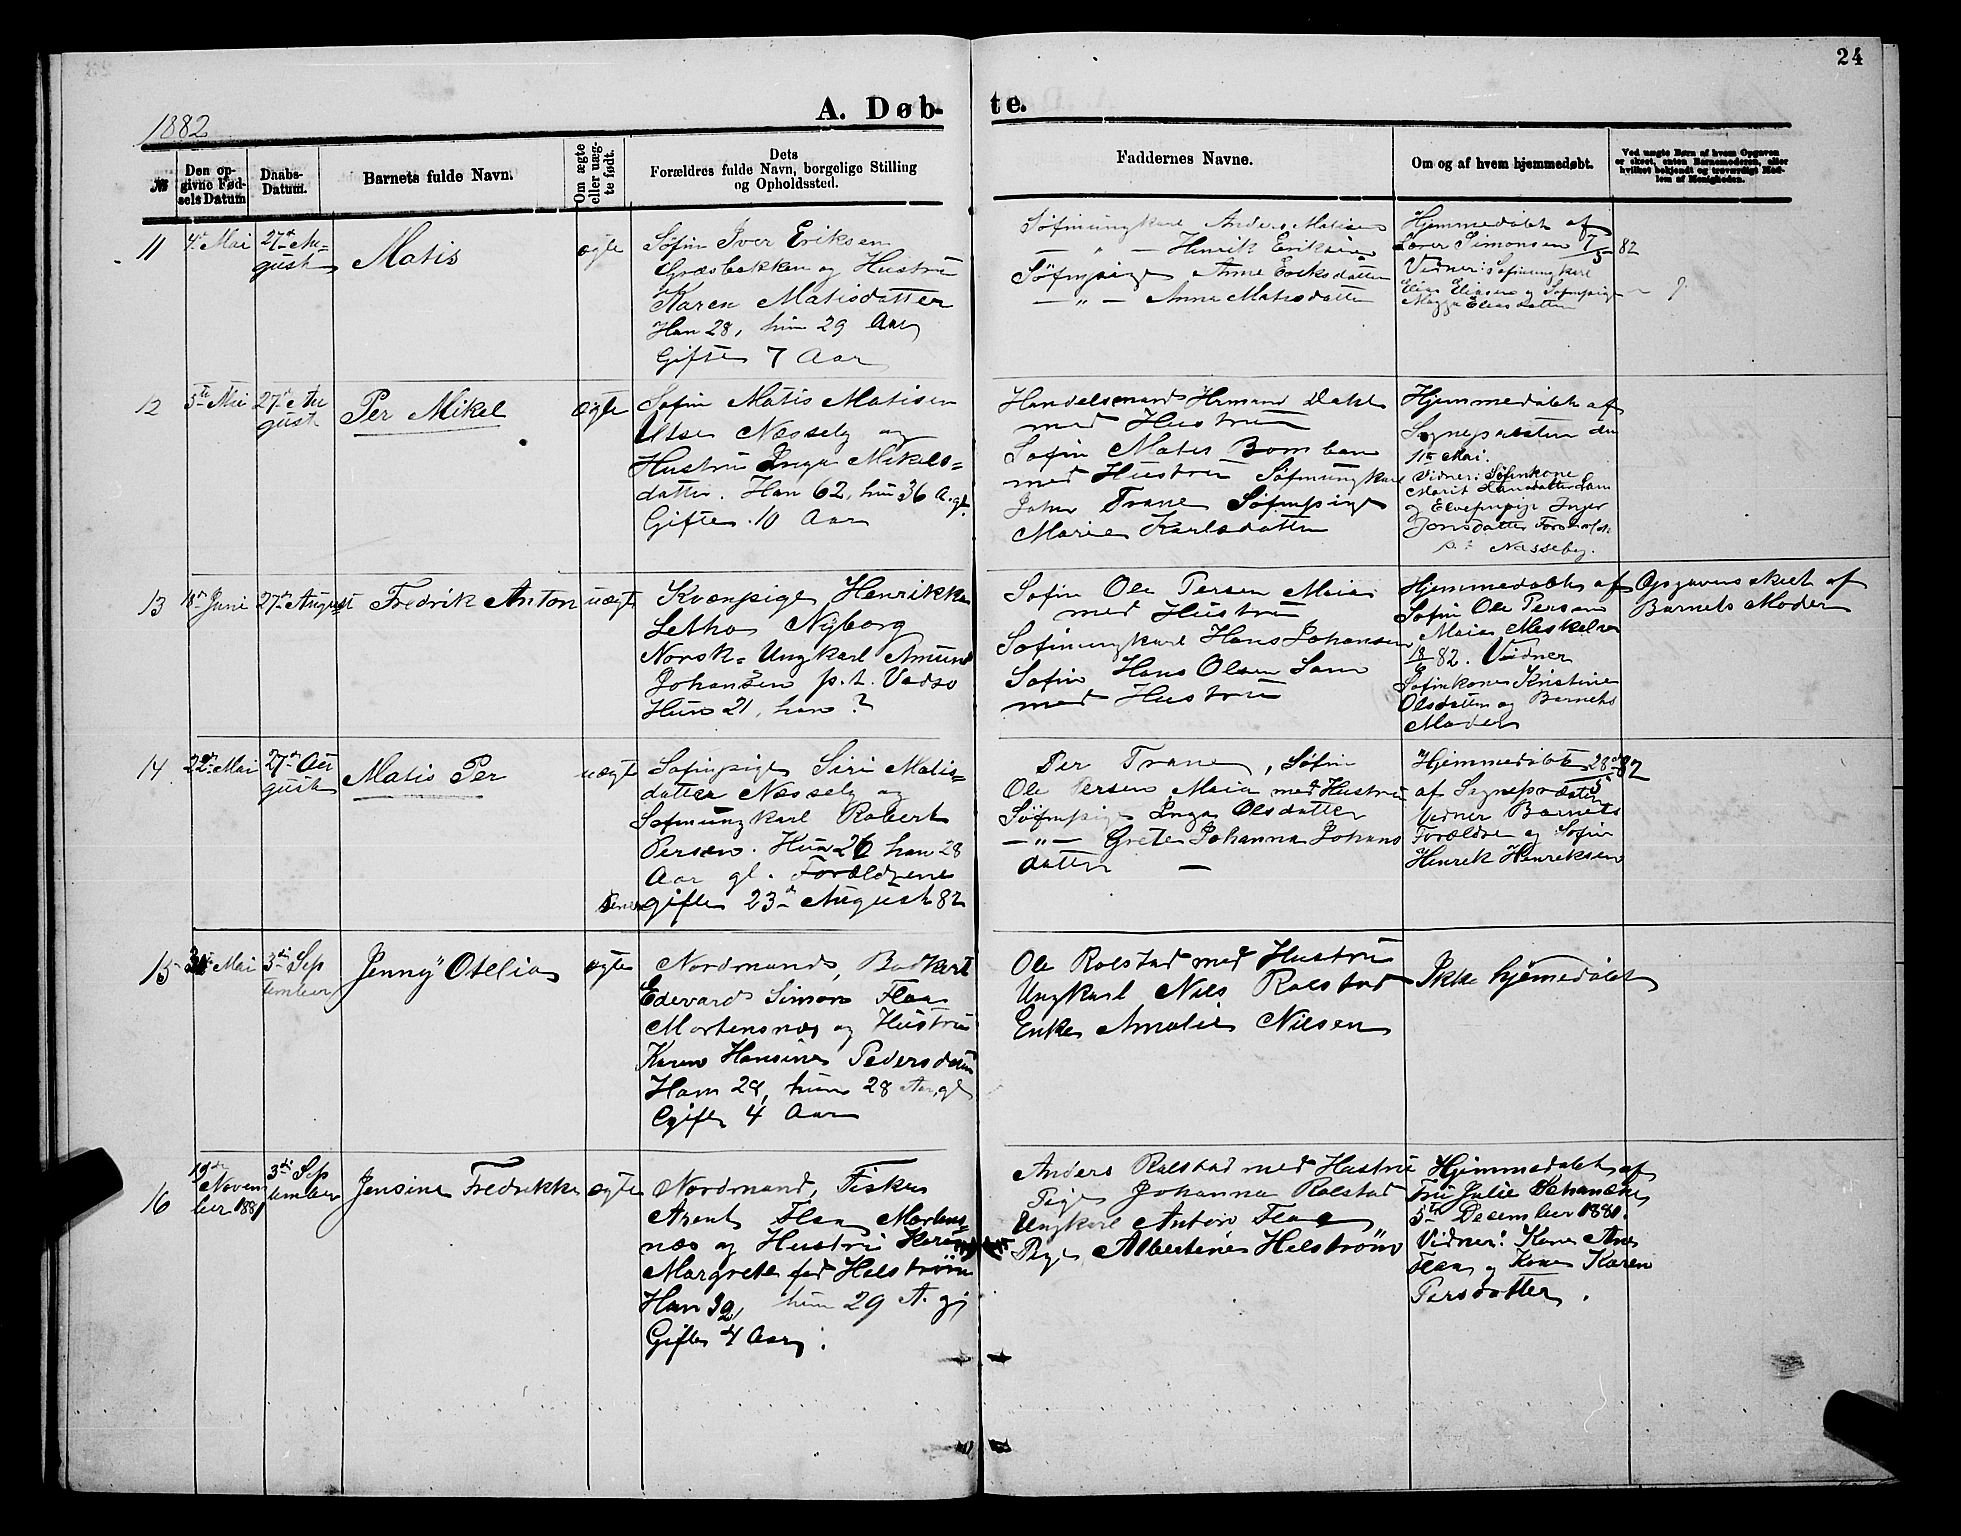 24
A. Døb- te.
1882
№
Den op-
givne Fød-
sels Datum
Daabs-
Datum.
Barnets fulde Navn.
Om ægte
eller uæg-
te født.
Dets
Forældres fulde Navn, borgelige Stilling
og Opholdssted.
Faddernes Navne.
Om og af hvem hjemmedøbt.
Ved uægte Børn af hvem Opgaven
er skeet, enten Barnemoderen, eller
hvilket bekjendt og troværdigt Med-
lem af Menigheden.
11
4de Mai
27de Au-
gust
Matis
ægte
Søfin Iver Eriksen
Græsbakken og Hustru
Karen Matisdatter
Han 28, hun 29 Aar
Gifte 7 Aar
Søfinungkarl Anders Matisen
— " — Henrik Eriksen
Søfinpige Anne Eriksdatter
— " — Anne Matisdatter
Hjemmedøbt af
Lærer Simonsen 7/5 82
Vidner: Søfinungkarl
Elias Eliasen og Søfinpige
Magga Eliasdatter
12
5te Mai
27de Au
gust
Per Mikel
ægte
Søfin Matis Matisen
Utsi Næsseby og
Hustru Inga Mikels=
datter. Han 62, hun 36 A. gl.
Gifte 10 Aar
Handelsmand Hermand Dahl
med Hustru
Søfin Matis Bomban
med Hustru Søfinungkarl
John Trane Søfinpige
Marie Karlsdatter
Hjemmedøbt af
Sognepresten den
11te Mai.
Vidner: Søfinkone
Marit Hansdatter Sam
og Elvefinpige Inger
Jonsdatter
p. t. Næsseby.
13
18de Juni
27de August
Fredrik Anton
uægte
Kvænpige Henrikke
Letho Nyborg
Norsk= Ungkarl Amund
Johansen p. t. Vadsø
Hun 21, han ?
Søfin Ole Persen Maia
med Hustru
Søfinungkarl Hans Johansen
Søfin Hans Olsen Sam
med Hustru
Hjemmedøbt af
Søfin Ole Persen
Maia Meskelven
18/ 82. Vidner
Søfinkone Kristine
Olsdatter og Barnets
Moder
Opgaven skeet af
Barnets Moder
14
22de Mai
27de Au
gust
Matis Per
uægte
Søfinpige Siri Matis=
datter Næsseby og
Søfinungkarl Robert
Persen. Hun 26 han 28
Aar gl. Forældrene
gifte 23de August 82
Per Trane, Søfin
Ole Persen Maia med Hustru
Søfinpige Inga Olsdatter
— " — Grete Johanna Johans
datter —
Hjemmedøbt 28de/5 82
af Sognepræsten
Vidner Barnets
Forældre og Søfin
Henrik Henriksen
15
Mai
3die Sep
tember
Jenny Otelia
ægte
Nordmand, Bødkert
Edevard Simon Flaa
Mortensnæs og Hustru
Karen Hansine Pedersdatter
Han 28, hun 28 Aar gl
Gifte 4 Aar
Ole Rolstad med Hustru
Ungkarl Nils Rolstad
Enke Amalie Nilsen
Ikke hjemedøbt
16
19de
Novem
ber 1881
3die Sep
tember
Jensine Fredrikke
ægte
Nordmand, Fisker
Arent Flaa Mortens=
næs og Hustru Karen
Margrete fød Helstrøm
Han 32, hun 29 A. gl
Gifte 4 Aar.
Anders Rolstad med Hustru
Pige Johanna Rolstad
Ungkarl Anton Flaa
Pige Albertine Helstrøm
Hjemmedøbt af
Fru Julie Schanche
5te December 1881.
Vidner: Kone Ane
Flaa og Kone Karen
Persdatter.